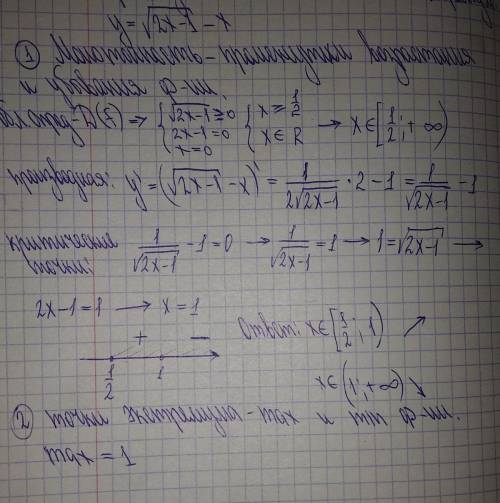 y = √(2x-1) - x
① Монотонность - промежутки возрастания
и убывания ф-ии.
обл. опред - D(f) => { √(2x-1) ≥ 0 { x ≥ 1/2 → x ∈ [1/2; +∞)
2x-1 = 0 x ∈ R
x = 0
производная: y' = (√(2x-1) - x)' = 1/(2√(2x-1)) · 2 - 1 = 1/√(2x-1) - 1
критические точки: 1/√(2x-1) - 1 = 0 → 1/√(2x-1) = 1 → 1 = √(2x-1) →
2x-1 = 1 → x = 1
+ −
1/2 1
Ответ: x ∈ [1/2; 1) ↗
x ∈ (1; +∞) ↘
② точки экстремума - max и min ф-ии.
max = 1